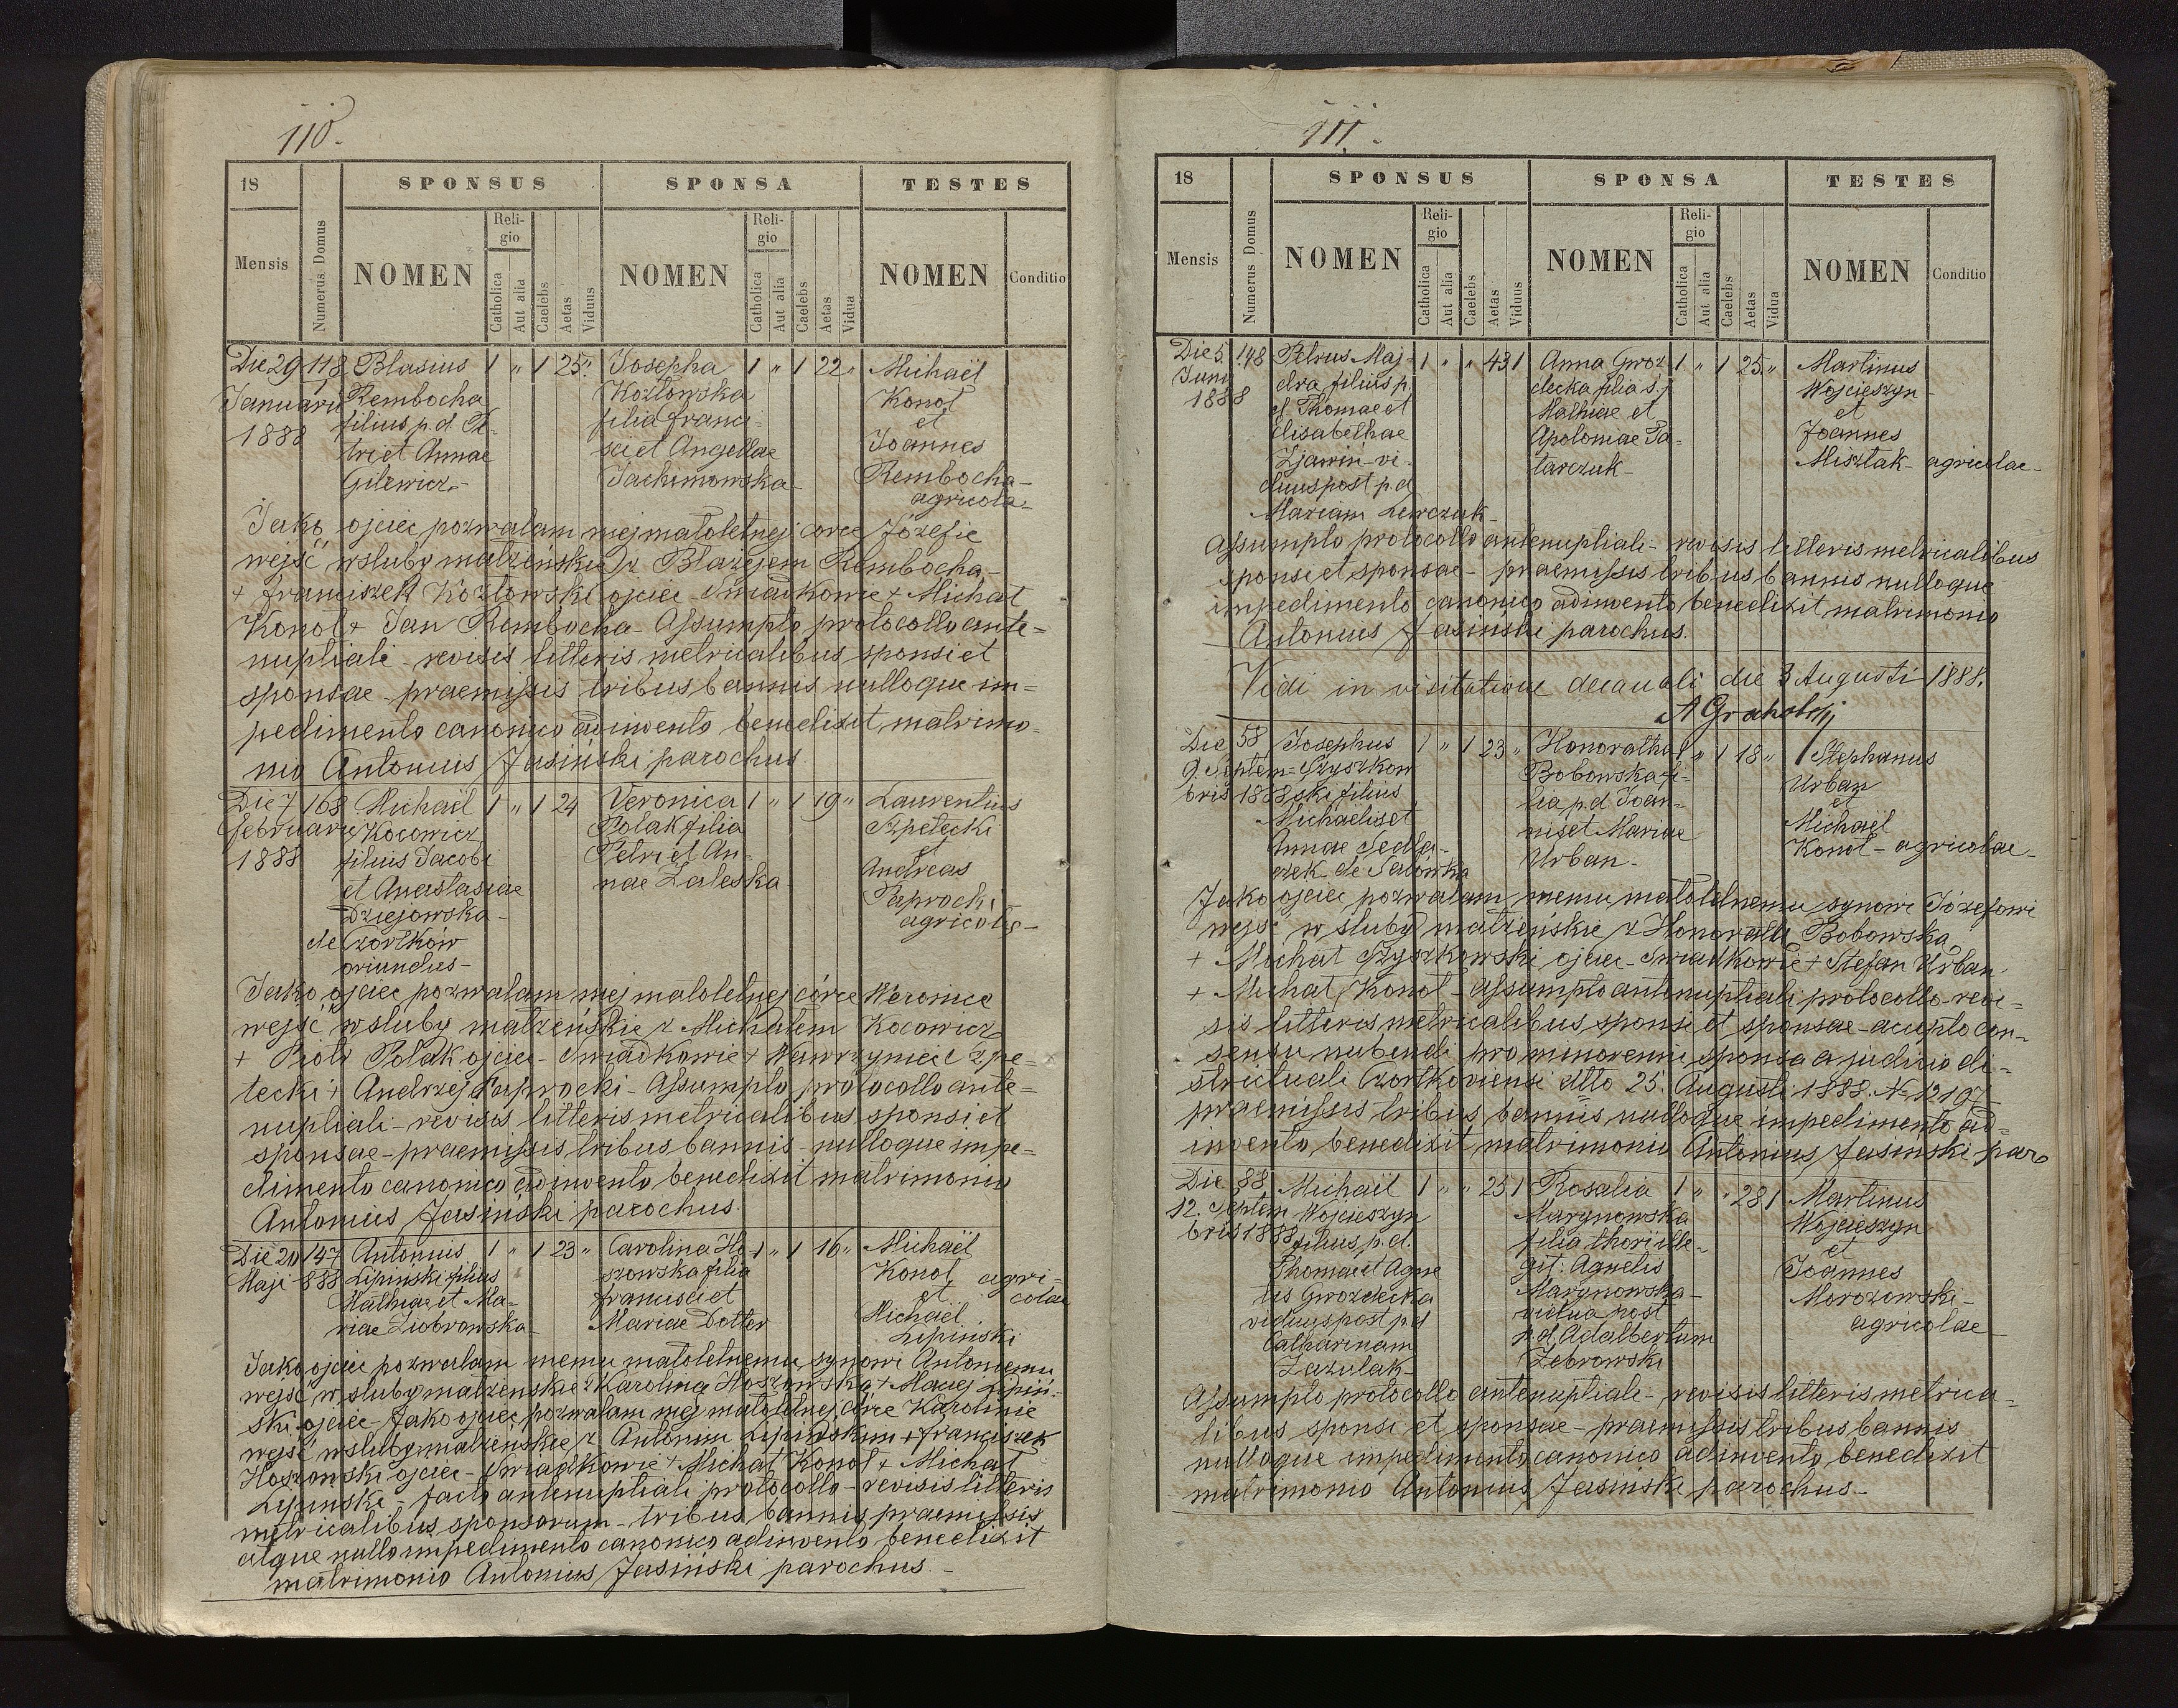 110.
18
SPONSUS
SPONSA
TESTES
Mensis
Numerus Domus
NOMEN
Reli-
gio
Catholica
Aut alia
Caelebs
Aetas
Viduus
NOMEN
Reli-
gio
Catholica
Aut alia
Caelebs
Aetas
Vidua
NOMEN
Conditio
Die 29 118 Blasius 1 " 1 25 " Josepha 1 " 1 22 " Michaël
Januarii Rembocha Kozłowska Konol
1888 filius p. d. Pe- filia Franci- et
tri et Annae sci et Angellae Joannes
Gilewicz- Jachimowska- Rembocha-
agricola-
Jako ojciec pozwalam mej małoletnej córce Józefie
wejść w śluby małżeńskie z Błażejem Rembocha-
+ Franciszek Kozłowski ojciec - Świadkowie + Michał
Konol + Jan Rembocha - Assumpto protocollo ante=
nuptiali - revisis litteris metricalibus sponsi et
sponsae - praemissis tribus bannis nulloque im=
pedimento canonico adinvento benedixit matrimo-
nio Antonius Jasiński parochus.
Die 7 168 Michaël 1 " 1 24 Veronica 1 " 1 19 " Laurentius
Februarii Kocowicz Polak filia Rpetecki
1888 filius Jacobi Petri et An- et
et Anastasiae nae Zaleska- Andreas
Dziejowska- Paprocki
de Czortków agricolae-
oriundus-
Jako ojciec pozwalam mej małoletnej córce Weronice
wejść w śluby małżeńskie z Michałem Kocowicz
+ Piotr Polak ojciec - Świadkowie + Wawrzyniec Rpe-
tecki + Andrzej Paprocki - Assumpto protocollo ante=
nuptiali - revisis litteris metricalibus sponsi et
sponsae - praemissis tribus bannis - nulloque impe=
dimento canonico adinvento benedixit matrimonio
Antonius Jasiński parochus.
Die 20 147 Antonius 1 " 1 23 " Carolina Ho- 1 " 1 16 " Michaël
Maji 888 Lipiński filius szowska filia Konol agri-
Mathiae et Ma- Francisci et et colae
riae Ziobrowska- Mariae Dotter Michaël
Lipiński
Jako ojciec pozwalam memu małoletnemu synowi Antoniemu
wejść w śluby małżeńskie z Karoliną Hoszowską + Maciej Lipiń-
ski ojciec - Jako ojciec pozwalam mej małoletnej córce Karolinie
wejść w śluby małżeńskie z Antonim Lipińskim + Franciszek
Hoszowski ojciec - Świadkowie + Michał Konol + Michał
Lipiński - facto antenuptiali protocollo - revisis litteris
metricalibus sponsorum - tribus bannis praemissis
atque nullo impedimento canonico adinvento benedixit
matrimonio Antonius Jasiński parochus.-
111.
18
SPONSUS
SPONSA
TESTES
Mensis
Numerus Domus
NOMEN
Reli-
gio
Catholica
Aut alia
Caelebs
Aetas
Viduus
NOMEN
Reli-
gio
Catholica
Aut alia
Caelebs
Aetas
Vidua
NOMEN
Conditio
Die 5. 148 Petrus Maj- 1 " " 43 1 Anna Gwoz 1 " 1 25 " Martinus
Juny dra filius p. decka filia Wojcieszyn
1888 d. Thomae et Mathiae et et
Elisabethae Apoloniae Ta- Joannes
Zjawin - vi- tarczuk- Misztak - agricolae-
duus post p. d.
Mariam Lewczuk-
Assumpto protocollo antenuptiali - revisis litteris metricalibus
sponsi et sponsae - praemissis tribus bannis nulloque
impedimento canonico adinvento benedixit matrimonio
Antonius Jasiński parochus.
Vidi in visitatione decanali die 3 Augusti 1888.
Die 58 Josephus 1 " 1 23 " Honoratha 1 " 1 18 " Stephanus
9. Septem= Szyszkow Bobowska fi- Urban
bris 1888 ski filius lia p. d. Joan- et
Michaelis et nis et Mariae Michaël
Annae Sedla- Urban- Konol - agricolae-
czek de Salówka
Jako ojciec pozwalam memu małoletnemu synowi Józefowi
wejść w śluby małżeńskie z Honoratą Bobowską
+ Michał Szyszkowski ojciec - Świadkowie + Stefan Urban
+ Michał Konol - Assumpto antenuptiali protocollo - revi=
sis litteris metricalibus sponsi et sponsae - accepto con-
sensu nubendi pro minorenni sponsa a judicio di-
strictuali Czortkoviensi dtto 25. Augusti 1888. N. 12197
praemissis tribus bannis nulloque impedimento ad=
invento benedixit matrimonio Antonius Jasiński paro
Die 88 Michaël 1 " " 25 1 Rosalia 1 " " 28 1 Martinus
12. Septem Wojcieszyn Marynowska Wojcieszyn
bris 1888 filius p. d. filia thori ille- et
Thomae et Agne git: Agnetis Joannes
tis Gwozdecka Marynowska- Morozowski-
viduus post p d vidua post agricolae
Catharinam p. d. Adalbertum
Zazulak- Żebrowski
Assumpto protocollo antenuptiali - revisis litteris metrica=
libus sponsi et sponsae - praemissis tribus bannis
nulloque impedimento canonico adinvento benedixit
matrimonio Antonius Jasiński parochus-